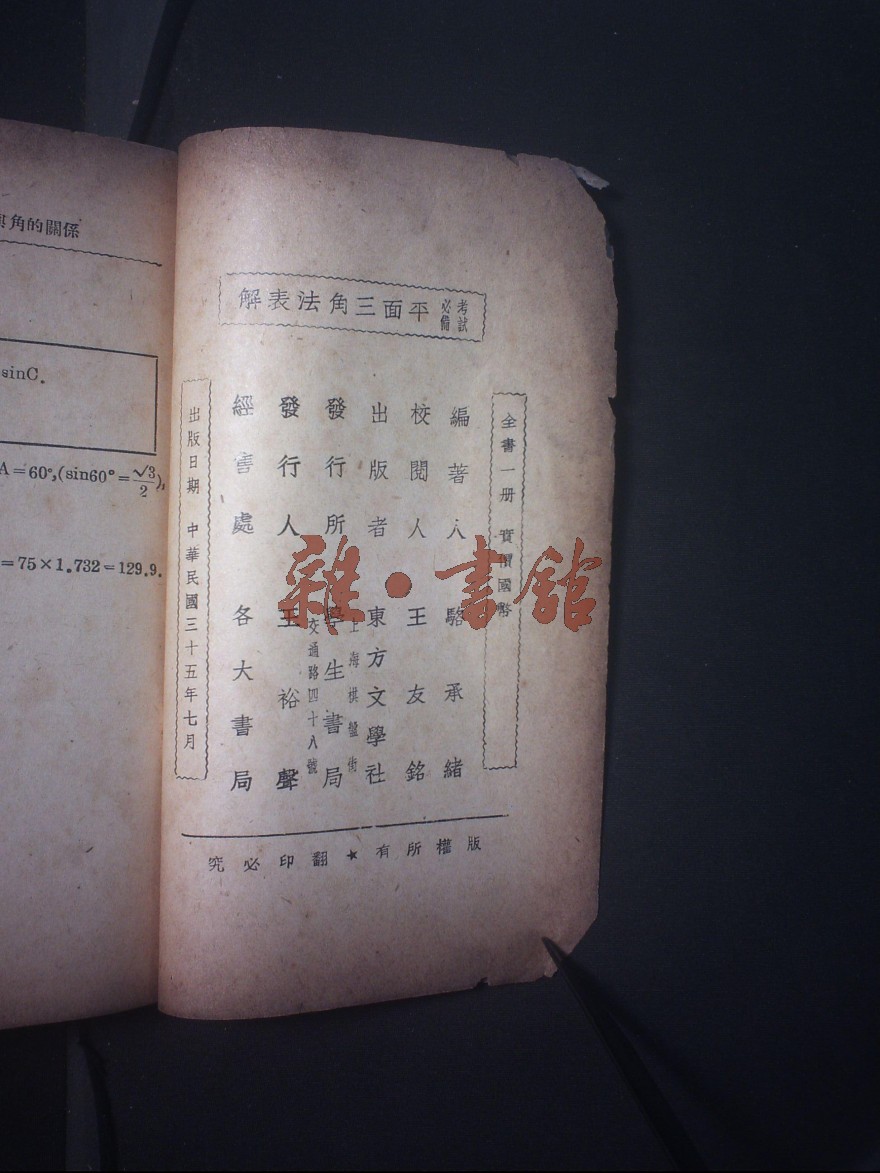 與角的關係
sinC.
A=60°,(sin60°=√3/2),
=75×1.732=129.9.
考試必備 平面三角法表解
全書一册 實價國幣
編著人 駱承緒
校閱人 王友銘
出版者 東方文學社
上海棋盤街
發行所 學生書局
交通路四十八號
發行人 王裕聲
經售處 各大書局
出版日期 中華民國三十五年七月
版權所有★翻印必究
雜·書館